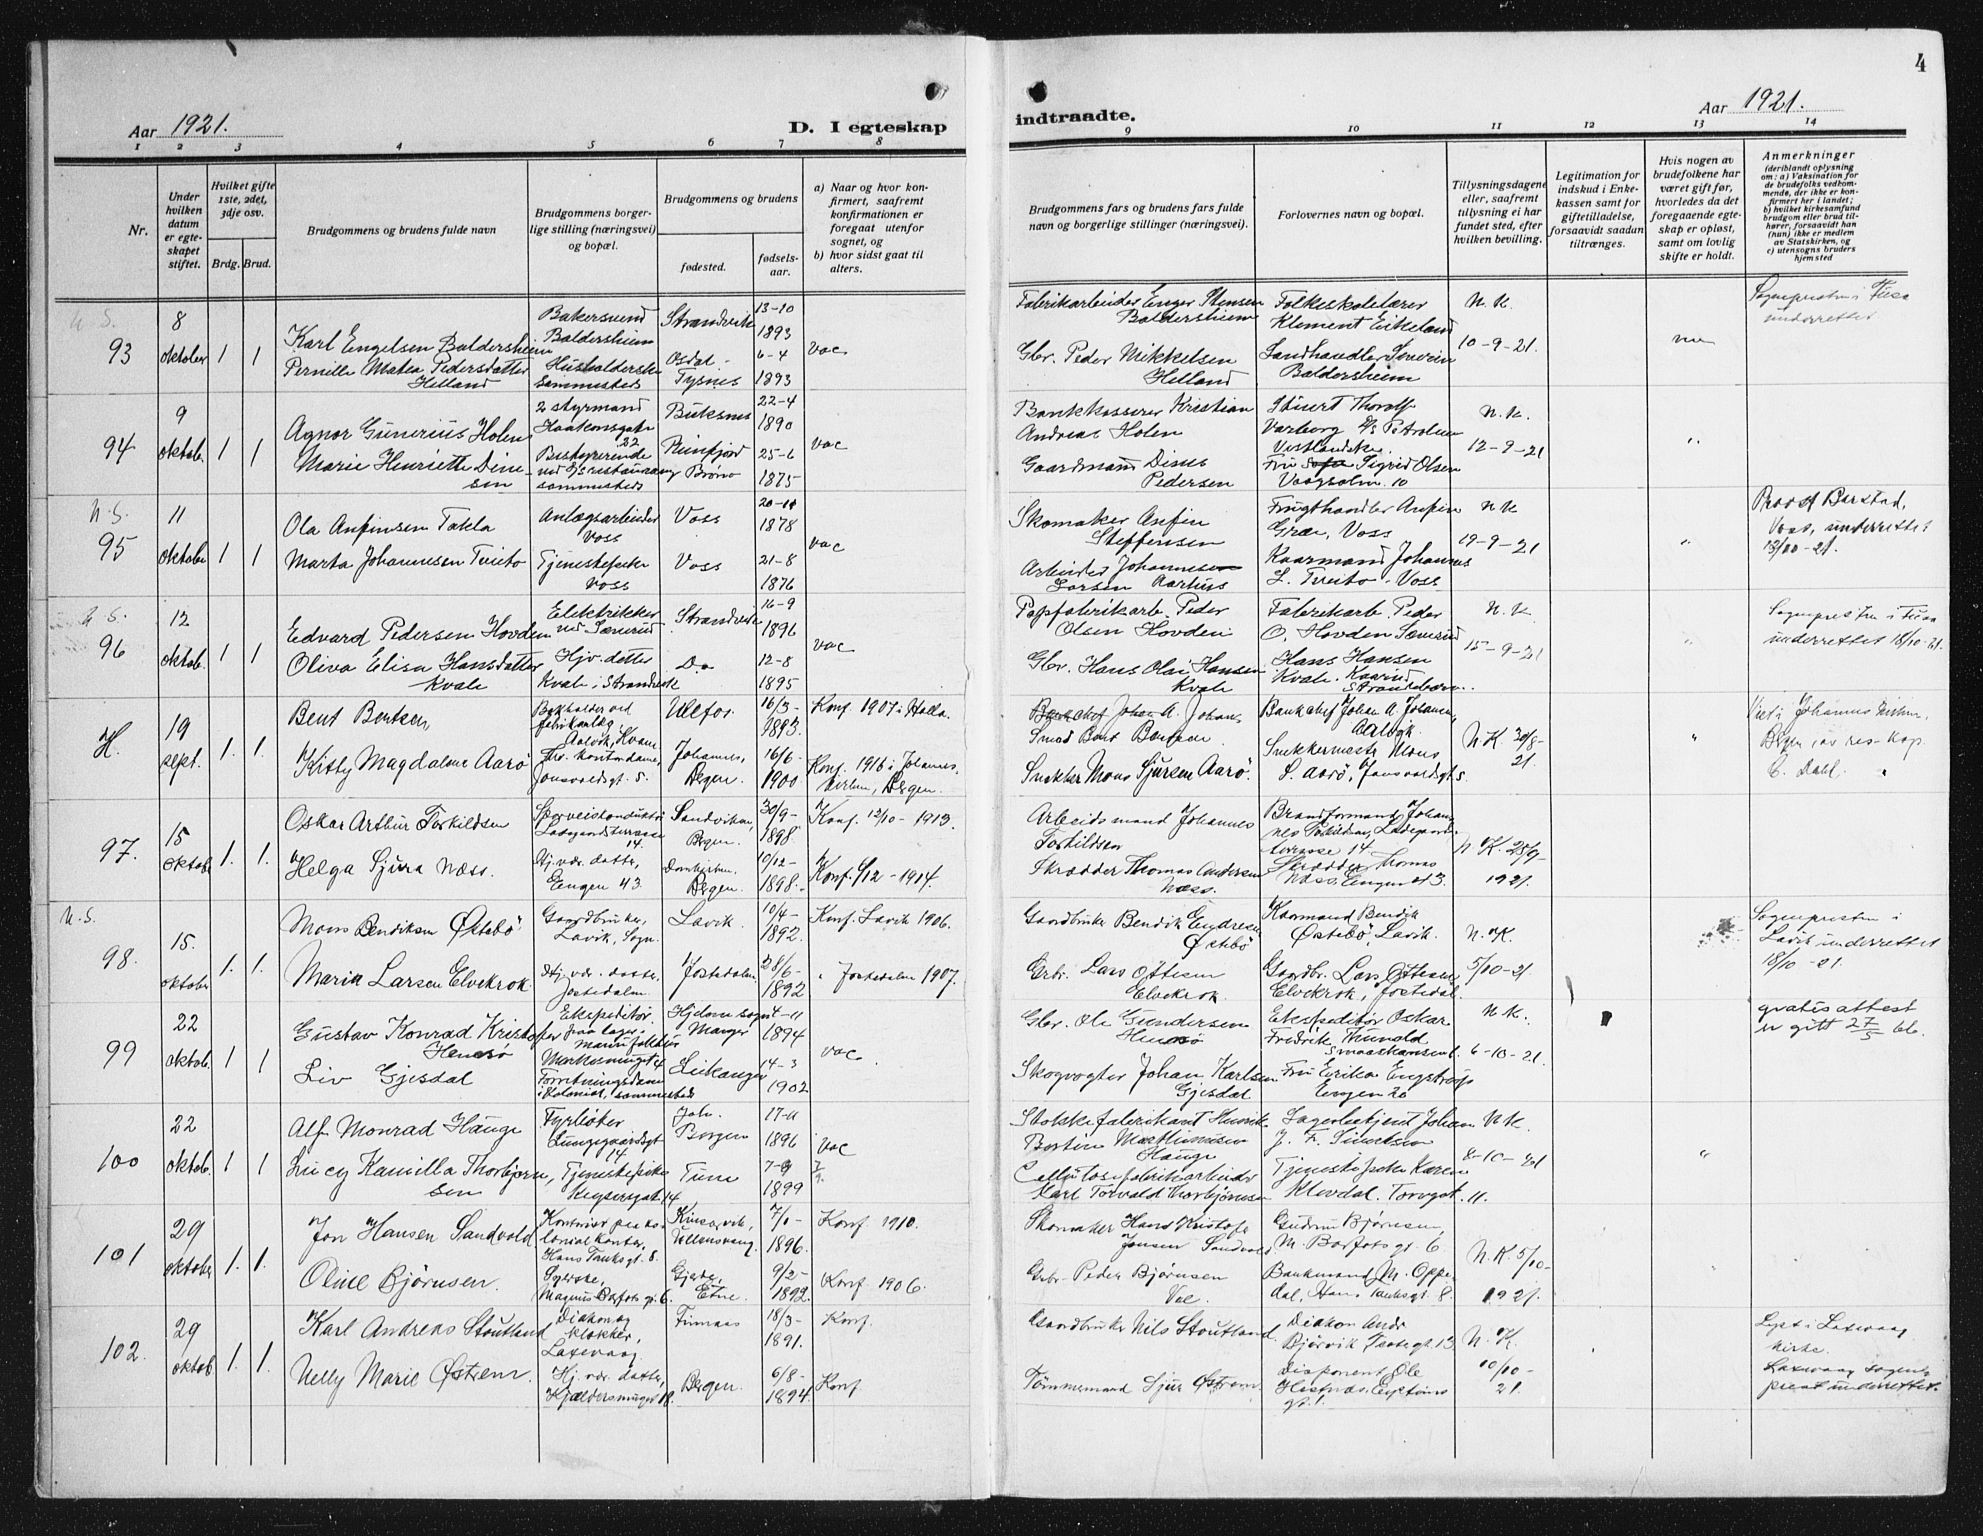 4
Aar 1921.
D. I egteskap
indtraadte.
Aar 1921.
1 2 3 4 5 6 7 8
9 10 11 12 13 14
Nr.
Under hvilken datum er egteskapet stiftet.
Hvilket gifte 1ste, 2det, 3dje osv.
Brdg. Brud.
Brudgommens og brudens fulde navn
Brudgommens borgerlige stilling (næringsvei) og bopæl.
Brudgommens og brudens
fødested.
fødselsaar.
a) Naar og hvor konfirmert, saafremt konfirmationen er foregaaet utenfor sognet, og
b) hvor sidst gaat til alters.
Brudgommens fars og brudens fars fulde navn og borgerlige stillinger (næringsvei).
Forlovernes navn og bopæl.
Tillysningsdagene eller, saafremt tillysning ei har fundet sted, efter hvilken bevilling.
Legitimation for indskud i Enkekassen samt for giftetilladelse, forsaavidt saadan tiltrænges.
Hvis nogen av brudefolkene har været gift før, hvorledes da det foregaaende egteskap er opløst, samt om lovlig skifte er holdt.
Anmerkninger
(deriblandt oplysning om: a) Vaksination for de brudefolks vedkommende, der ikke er konfirmert her i landet;
b) hvilket kirkesamfund brudgom eller brud tilhører, forsaavidt han (hun) ikke er medlem av Statskirken, og
c) utensogns bruders hjemsted
U. S.
93
8 oktober 1 1
Karl Engelsen Baldersheim
Pernille Matea Pedersdatter
Helland
Bakersvend
Baldersheim
Husholderske
sammesteds
Strandvik
Osdal -
Tysnes
13-10
1893
6-4
1893
vac
Fabrikarbeider Enger Stensen
Baldersheim
Gbr. Peder Mikkelsen
Helland
Folkeskolelærer
Klement Eikeland
Landhandler Severin
Baldersheim
N. K.
10-9-21.
Sogneprsten i Fusa
underrettet
94
9 oktob. 1 1
Agnor Gunerius Holen
Marie Henriette Dinesen
2 styrmand
Haakonsgate
22
Bestyrerinde
sammesteds
Buksnes
Brönö
22-4
1890
25-6
1875
vac
Bankkasserer Kristian
Andreas Holen
Gaardmand Dinus
Pedersen
Varborg Petroleum
Vestlandske.
Fru Sigrid Olsen
Vaagsalm. 10
N. K.
12-9-21
N. S.
95
11 oktober 1 1
Ola Anfinsen Takla
Marta Johannesen Tveito
Anlægsarbeider
Voss
Tjenestepike
Voss
Voss
Voss
20-11
1878
21-8
1876
vac
Skomaker Anfin
Steffensen
Arbeider Johannes
Larsen Aarhus
Frugthandler Anfin
Græe, Voss
Kaarmand Johannes
L. Tveito. Voss
N K
19-9-21
Provst Barstad,
Voss, underrettet
13/10-21.
U. S.
96
12 oktob. 1 1
Edvard Pedersen Hovden
Oliva Elisa Hansdatter
Kvale
Elektrikker
ved Sævareid
Hjv. datter
Kvale i Strandvik
Strandvik
Do
16-9
1896
12-8
1895
vac
Papfabrikarb. Peder
Olsen Hovden
Gbr. Hans Olai Hansen
Kvale
Fabrikarb. Peder
O. Hovden Sævereid
Hans Hansen
Kvale.
N. K.
15-9-21
Sogneprsten i Fusa
underrettet 18/10-21.
H.
19 sept. 1. 1.
Bent Bentsen,
Kitty Magdalene Aarö
Bokholder ved
Aalvik, Kvam
Fhv. kontordame,
Jonsvoldsgt. 5.
Ullefos.
Johannes,
Bergen.
16/3-
1893.
16/6-
1900
Konf. 1907 i Holla.
Konf. 1916 i Johannes.
kirken, Bergen.
Smed Bent Bentsen.
Snekker Mons Sjursen Aarö.
Bankchef Johan A. Johannes,
Aalvik.
Snekkermester Mons
S. Aarö, Jonsvoldsgt 5.
N. K. 30/8-
21.
Viet i Johannes kirken,
Bergen av res. kap.
C. Dahl.
97.
15 oktob 1. 1.
Oskar Arthur Torkildsen
Helga Sjura Næss.
Sporveiskonduktör
Ladegaardsterrasse
14.
Hj. vær. datter,
Engen 43.
Sandviken,
Bergen.
Domkirken.
Bergen.
30/9-
1898.
10/12-
1898.
Konf. 12/10-1913.
Konf. 4/12-1914.
Arbeidsmand Johannes
Torkildsen
Skrædder Thomas Andersen
Næss.
Brandformand Johannes Torkildsen, Ladegaardsterrasse 14.
Skrædder Thomas
Næss. Engen 43.
N. K. 28/9-
1921.
N. S.
98.
15. oktober 1. 1.
Mons Bendiksen Østebö
Maria Larsen Elvekrok
Gaardbruker,
Lavik, Sogn.
Hj. vær. datter,
Jostedalen.
Lavik.
Jostedalen
10/4-
1892.
28/6-
1892
Konf. Lavik 1906.
" Jostedalen 1907.
Gaardbruker Bendik Endresen
Østebö
Grbr. Lars Ottesen
Elvekrok
Kaarmand Bendik
Østebö, Lavik.
Gaardbr. Lars Ottesen
Elvekrok, Jostedal.
N. K.
5/10-21.
Sognepresten i
Lavik underrettet
18/10-21.
99
22 oktob. 1 1
Gustav Konrad Kristoffer
Henosö
Liv Gjesdal
Ekspeditör
paa lager i
Manufaktur
Markesmuget 4
Forretningsdame
i Kolonial, sammesteds
Hjelme sogn
Manger
Leikanger
4-11
1894
14-3
1902
vac
Gbr. Ole Gundersen
Henosö
Skogvogter Johan Karlsen
Gjesdal
Ekspeditör Oskar
Fredrik Thunold
Fru Erika Engstrøm
Engen 20
N K.
6-10-21.
gratis attest
utgitt 27/5 66.
100
22 oktob. 1 1
Alf Monrad Hauge
Lucy Kamilla Thorbjörnsen
Fyrböter
Lungegaardsgt
14
Tjenestepike
Keysersgat. 14
Joh.
Bergen
Tune
17-11
1896
7-9
1899
vac
Stolskefabrikant Henrik
Martinusen
Hauge
Cellulosefabrikarbeider
Karl Torvald Thorbjörnsen
Lagerbetjent Johan
J. F. Simensen
Tjenestepike Karen
Klovdal. Torvgt. 11.
N K.
8-10-21
101
29 oktober 1. 1.
Jon Hansen Sandvold
Oline Björnsen.
Kontorist paa kolonialkontor,
Hans Tanksgt. 8.
Syerske,
Magnus Barfots gt. 6.
Kinsarvik,
Ullensvang.
Gjerde,
Etne.
1896.
9/2-
1892.
Konf. 1910.
Konf 1906.
Skomaker Hans Kristofe
Jonsen Sandvold
Grbr. Peder Björnsen
Gudrun Björnsen,
M. Barfots gt. 6.
Bankmand M. Oppedal, Hans Tanksgt. 8.
N. K. 5/10-
1921.
102.
29 oktob. 1. 1.
Karl Andreas Stoutland
Nelly Marie Østrem
Diakon og
klokker,
Laxevaag
Hj. vær. datter,
Kjeldersmuget 18.
Finnaas
Bergen.
18/3-
1891.
6/8-
1894.
Konf.
Konf
Gaardbruker Nils Stoutland.
Tömmermand Sjur Østrem
Diakon Andr
Björvik
Disponent Ole
N. K.
10/10-
21.
Lyst i Laxevaag
kirke.
Laxevaag sogneprest underrettet.